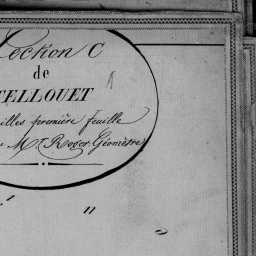 Section C
de
TELLOUET
première feuille
Mr. Roger Géomètre